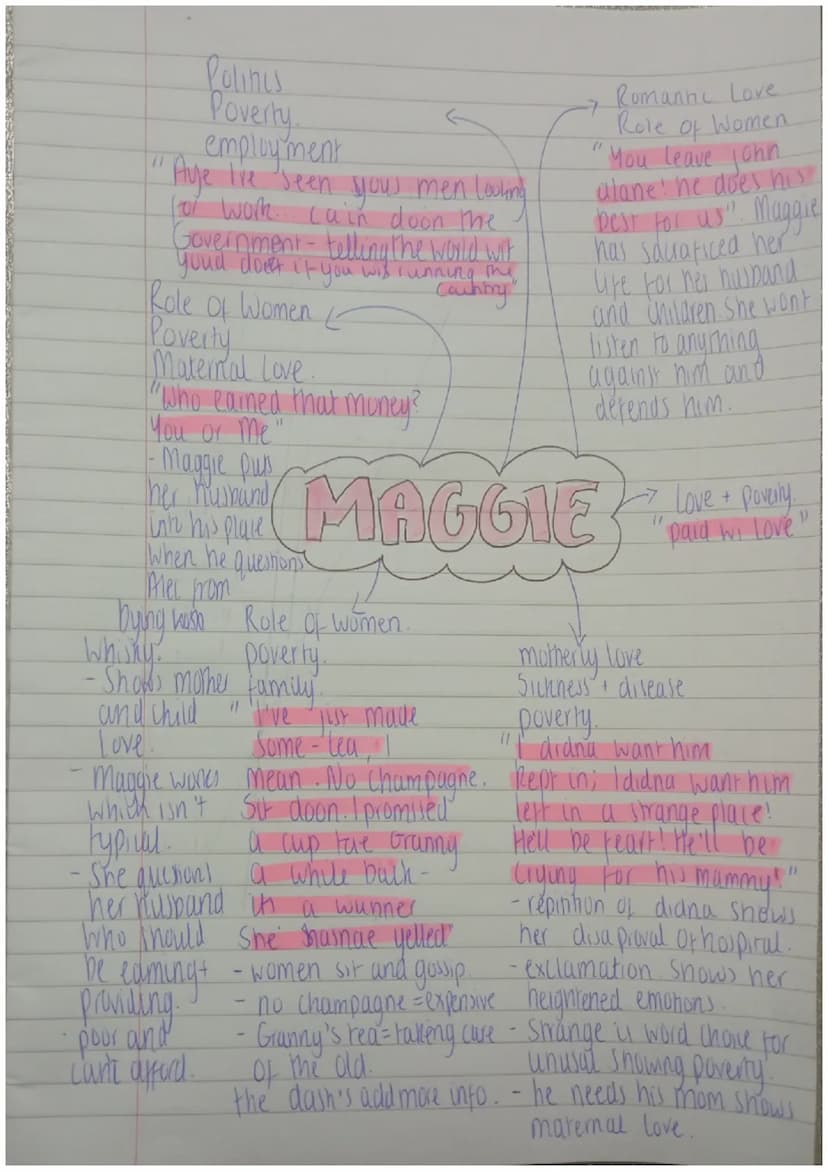 Politics
Poverty.
employment
"Aye I've seen yous men looking
for work... cain doon the
Government - telling the world wit
youd doo if you wis running the
country"
Romantic Love
Role of Women
"You leave john
alane! he does his
best for us". Maggie
has sacraficed her
life for her husband
and children. She wont
listen to anything
against him and
defends him.
Role of Women
Poverty
Maternal Love.
"Who earned that money?
You or Me"
- Maggie puts
her husband
into his place
when he questions
Alec from
bying
whisky.
- Shows mother
and child
Love.
- Maggie works
which isn't
typical.
- She questions
her husband
who should
be earning +
providing.
- poor and
can't afford.
MAGGIE
Love + poverty.
"paid wi love"
Role of women.
poverty.
family.
"I've just made
some - tea, I
mean. No champagne.
Sit doon. I promised
a cup tae Granny
a while back -
in a wunner
She hasnae yelled"
- women sit and gossip
- no champagne = expensive
- Granny's tea = taking care
of the old.
the dash's add more info.
motherly love
Sickness + disease
poverty.
"I didna want him
kept in; I didna want him
left in a strange place!
He'll be feart! He'll be
crying for his mammy!"
- repintion of didna shows
her disaproval of hospital.
- exclamation shows her
heightened emotions.
- Strange is word choice for
unusual showing poverty.
- he needs his mom shows
maternal love.